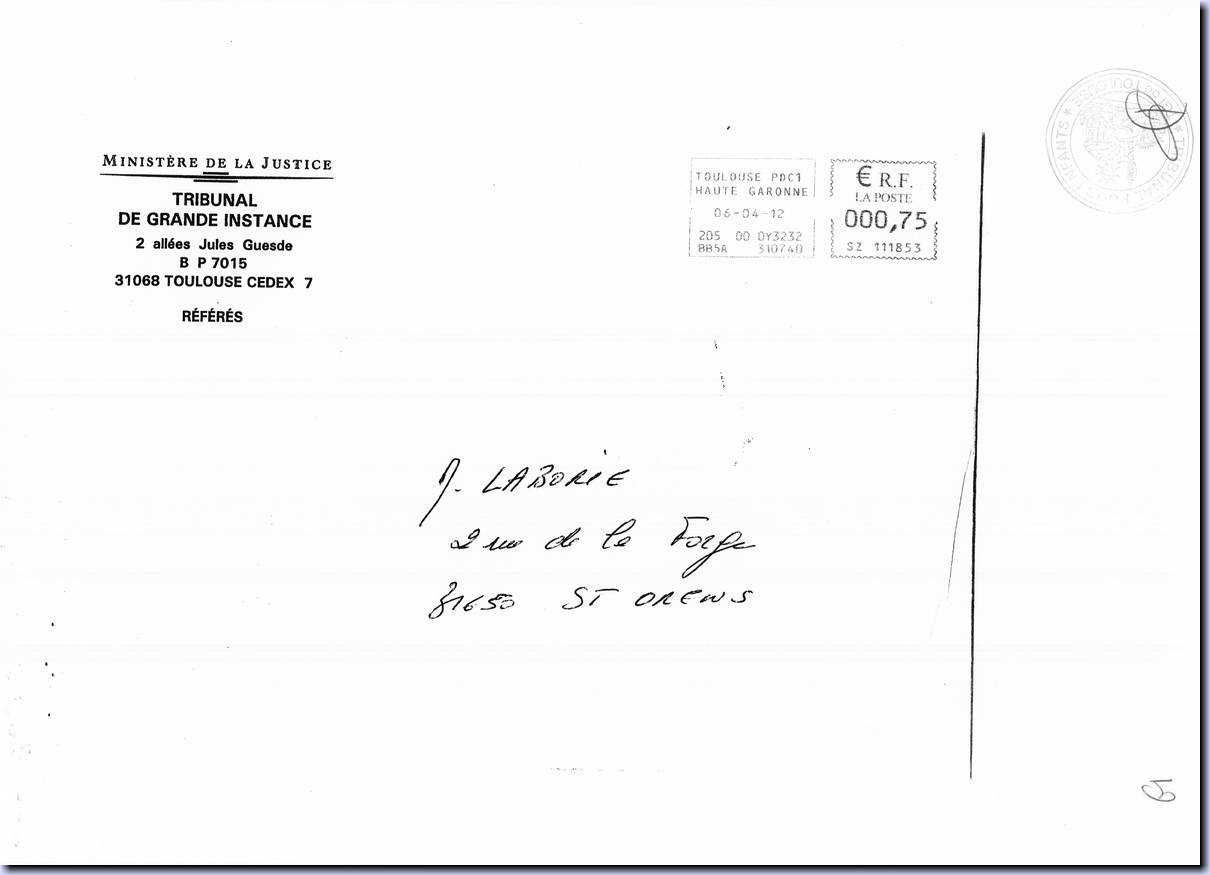 MINISTÈRE DE LA JUSTICE
TRIBUNAL
DE GRANDE INSTANCE
2 allées Jules Guesde
B P 7015
31068 TOULOUSE CEDEX 7
RÉFÉRÉS
TOULOUSE PDC1
HAUTE GARONNE
06-04-12
205 00 0Y3232
BB5A 310740
€ R.F.
LA POSTE
000,75
SZ 111853
TRIBUNAL POUR ENFANTS
M. LABORIE
2 rue de la Forge
31650 ST ORENS